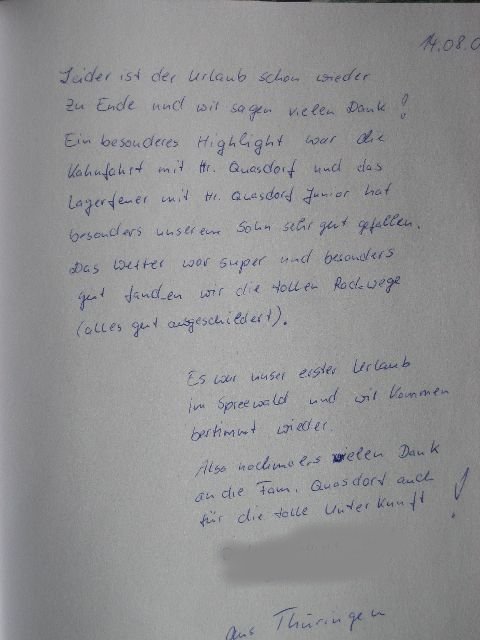 14.08.0
Leider ist der Urlaub schon wieder
zu Ende und wir sagen vielen Dank!
Ein besonderes Highlight war die
Kahnfahrt mit Hr. Quasdorf und das
Lagerfeuer mit Hr. Quasdorf Junior hat
besonders unserem Sohn sehr gut gefallen.
Das Wetter war super und besonders
gut fanden wir die tollen Radwege
(alles gut ausgeschildert).
Es war unser erster Urlaub
im Spreewald und wir kommen
bestimmt wieder.
Also nochmals vielen Dank
an die Fam. Quasdorf auch
für die tolle Unterkunft!
aus Thüringen